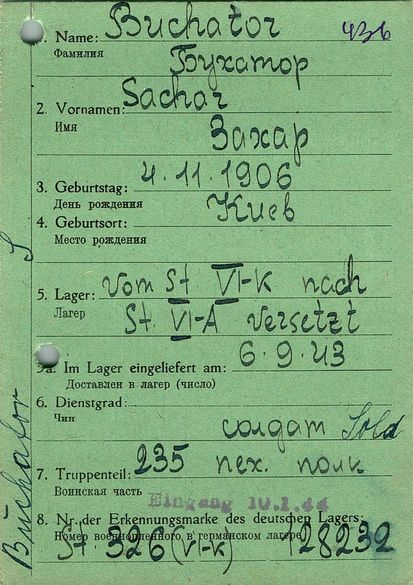 1. Name: Buchator 436
Фамилия Бухатор
2. Vornamen: Sachar
Имя Захар
3. Geburtstag: 4.11.1906
День рождения
4. Geburtsort: Киев
Место рождения
5. Lager: Vom St. VI-K nach
Лагер St. VI-A versetzt
5a. Im Lager eingeliefert am: 6.9.43
Доставлен в лагер (число)
6. Dienstgrad:
Чин солдат Sold
7. Truppenteil: 235 пех. полк
Воинская часть Eingang 10.1.44
8. Nr. der Erkennungsmarke des deutschen Lagers:
Номер военнопленного в германском лагере
St 326 (VI-K) 128232
Buchator S